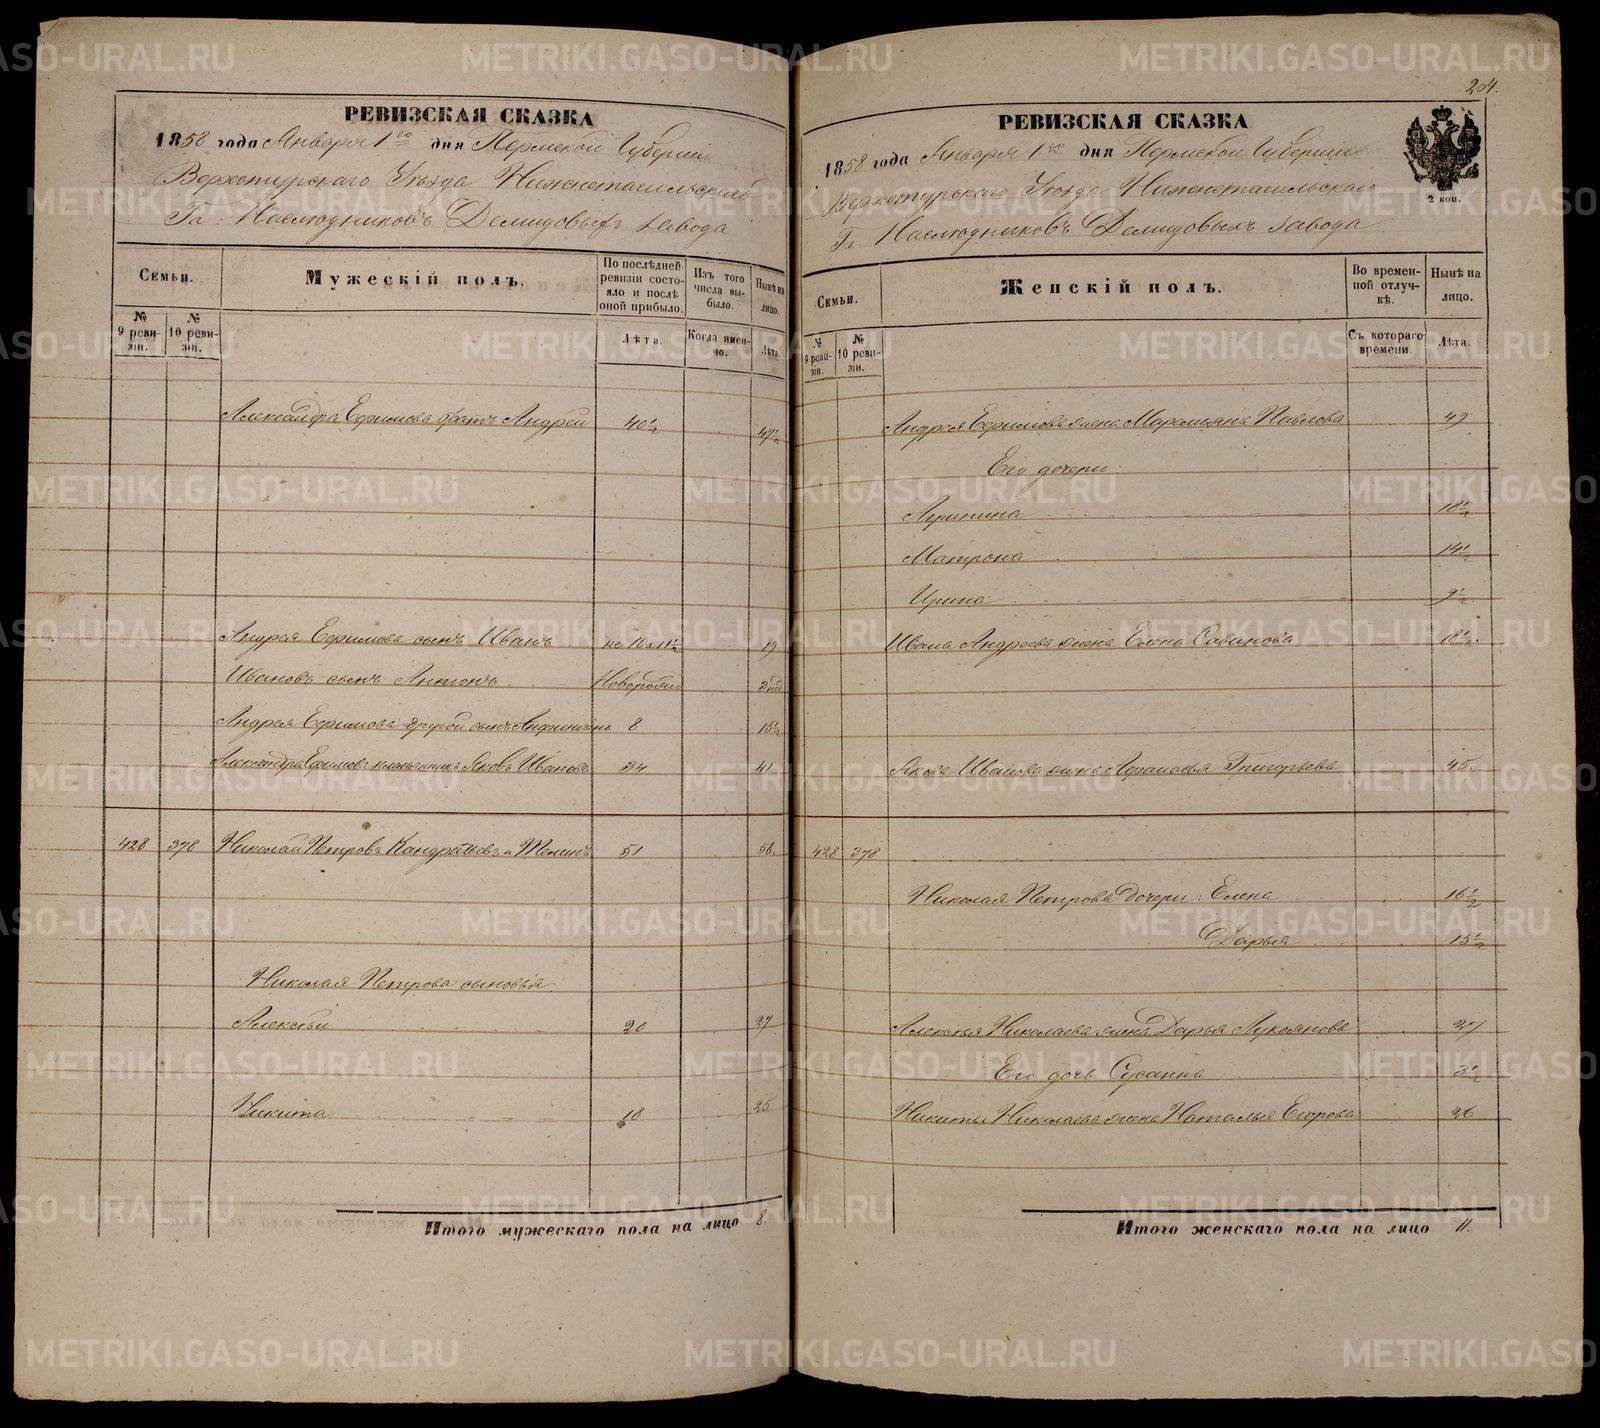 204.
РЕВИЗСКАЯ СКАЗКА
1858 года Января 1го дня Пермской Губернии
Верхотурскаго Уѣзда Нижнетагильскаго
Гг. Наслѣдниковъ Демидовыхъ завода
Семьи.
Мужескій полъ.
По послѣдней ревизіи состояло и послѣ оной прибыло.
Изъ того числа выбыло.
Нынѣ на лицо.
№ 9 ревизіи.
№ 10 ревизіи.
Лѣта.
Когда именно.
Лѣта.
Александра Ефимова братъ Андрей 40½ 47½
Андрея Ефимова сынъ Иванъ не 10 а 11½ 19
Ивановъ сынъ Антонъ Новорожд 3
Андрея Ефимова другой сынъ 8 15½
Александра Ефимова племянникъ Яковъ Ивановъ 34 41
428 378 Николай Петровъ Кандратьевъ и 51 58
Николая Петрова сыновья:
Алексѣй 20 27
Никита 18 25
Итого мужескаго пола на лицо 8.
РЕВИЗСКАЯ СКАЗКА
1858 года Января 1го дня Пермской Губернии
Верхотурскаго Уѣзда Нижнетагильскаго
Гг. Наслѣдниковъ Демидовыхъ завода
2 коп.
Семьи.
Женскій полъ.
Во временной отлучкѣ.
Нынѣ на лицо.
№ 9 ревизіи.
№ 10 ревизіи.
Съ котораго времени.
Лѣта.
Андрея Ефимова жена Маремьяна Павлова 49
Его дочери:
Агрипина 18½
Матрона 14½
Ирина 9½
Ивана Андреева жена Елена Савинова 18½
Якова Иванова жена Афанасья Григорьева 45.
428 378
Николая Петрова дочери: Елена 16½
Дарья 15½
Алексѣя Николаева жена Дарья Лукоянова 27
Его дочь Сусанна 3½
Никиты Николаева жена Наталья Егорова 26
Итого женскаго пола на лицо 11.
METRIKI.GASO-URAL.RU